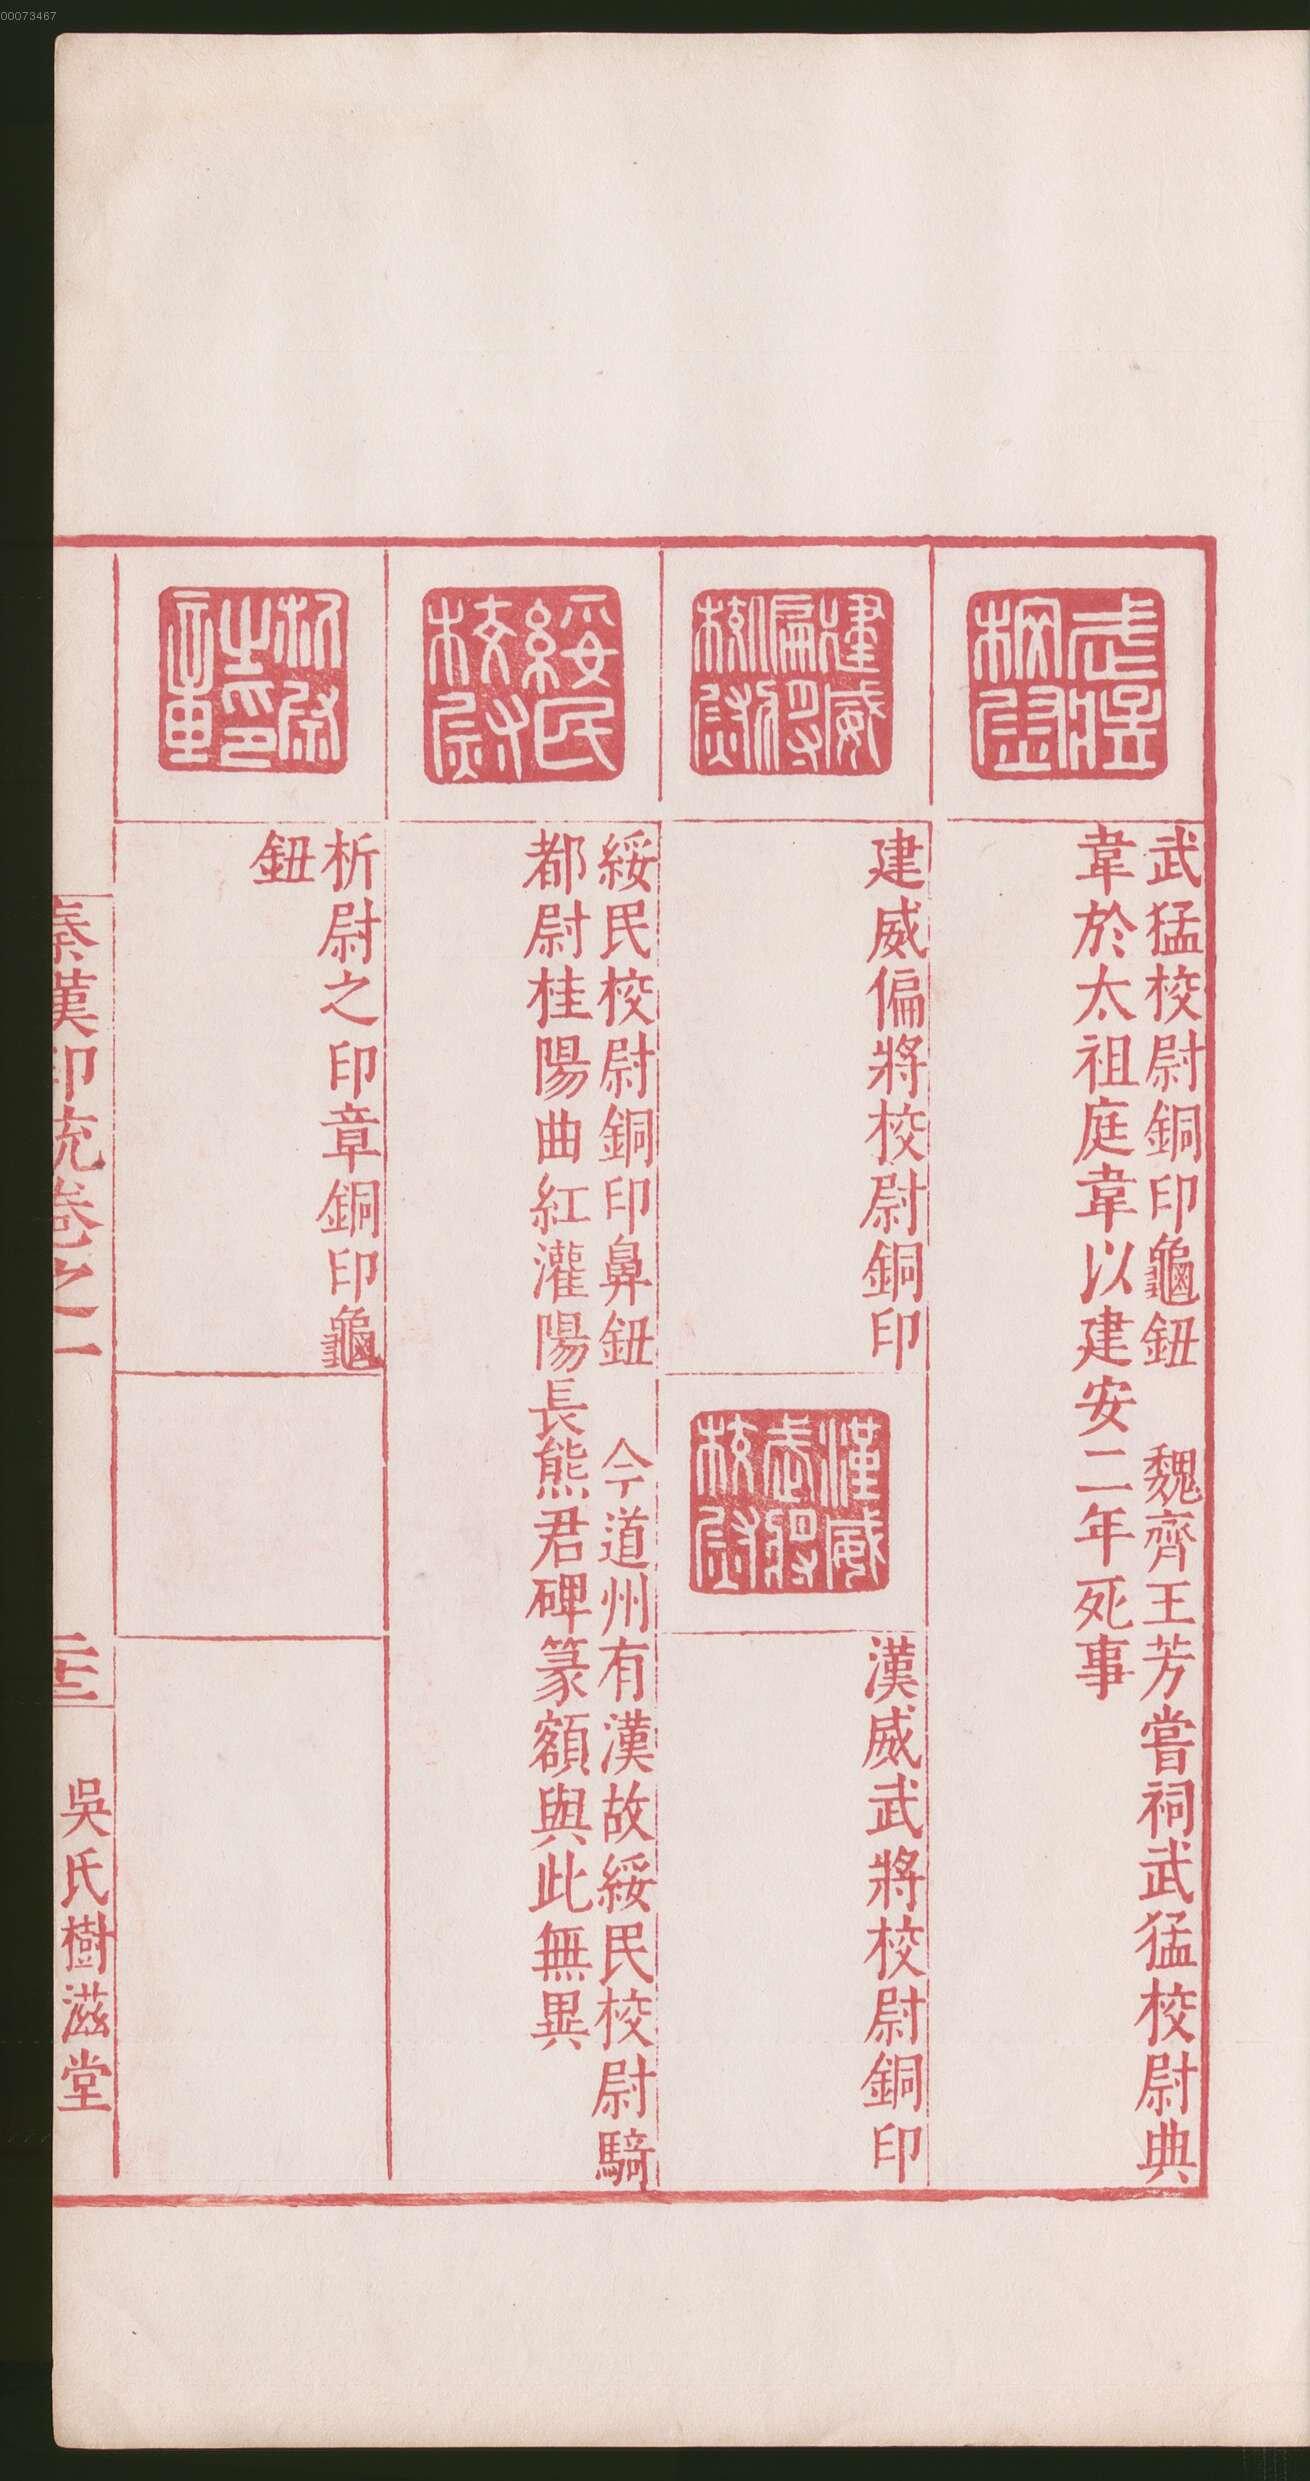 00073467
武猛校尉
武猛校尉銅印龜鈕　魏齊王芳嘗祠武猛校尉典
韋於太祖庭韋以建安二年死事
建威偏將校尉
建威偏將校尉銅印
漢威武將校尉
漢威武將校尉銅印
綏民校尉
綏民校尉銅印鼻鈕　今道州有漢故綏民校尉騎
都尉桂陽曲紅灌陽長熊君碑篆額與此無異
析尉之印章
析尉之印章銅印龜
鈕
秦漢印統卷之一
二十三
吳氏樹滋堂